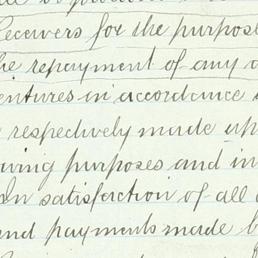 Receivers for the purpose
repayment of any
in accordance
respectively made up
purposes and in
In satisfaction of all
and payments made